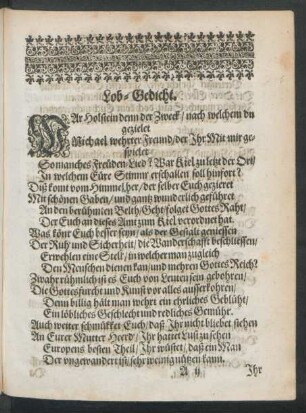 Lob-Gedicht.
WAr Holstein denn der Zweck / nach welchem du
gezielet
Michael wehrter Freund / der Jhr Mit mir ge-
spielet
So manches Freuden Lied? War Kiel zu letzt der Ort /
Jn welchem Eure Stimm' erschallen soll hinfort?
Diß komt vom Himmel her / der selber Euch gezieret
Mit schönen Gaben / und gantz wunderlich geführet
An den berühmten Belth / Geht folget Gottes Raht /
Der Euch an dieses Amt zum Kiel verordnet hat.
Was könt Euch besser seyn / als der Gestalt geniessen
Der Ruh und Sicherheit / die Wanderschafft beschliessen /
Erwehlen eine Stell / in welcher man zugleich
Den Menschen dienen kan / und mehren Gottes Reich?
Zwahr rühmlich ist es Euch von Leuten sein gebohren /
Die Gottesfurcht und Kunst vor alles ausserkohren /
Denn billig hält man wehrt ein ehrliches Geblüht /
Ein löbliches Geschlecht und redliches Gemühr.
Auch weiter schmükket Euch / daß Jhr nicht bliebet stehen
An Eurer Mutter Heerd / Jhr hattet Lust zu sehen
Europens besten Theil / Jhr wüstet / daß ein Man
Der ungewandert ist / sehr wenig nützen kann.
A ij
Jhr